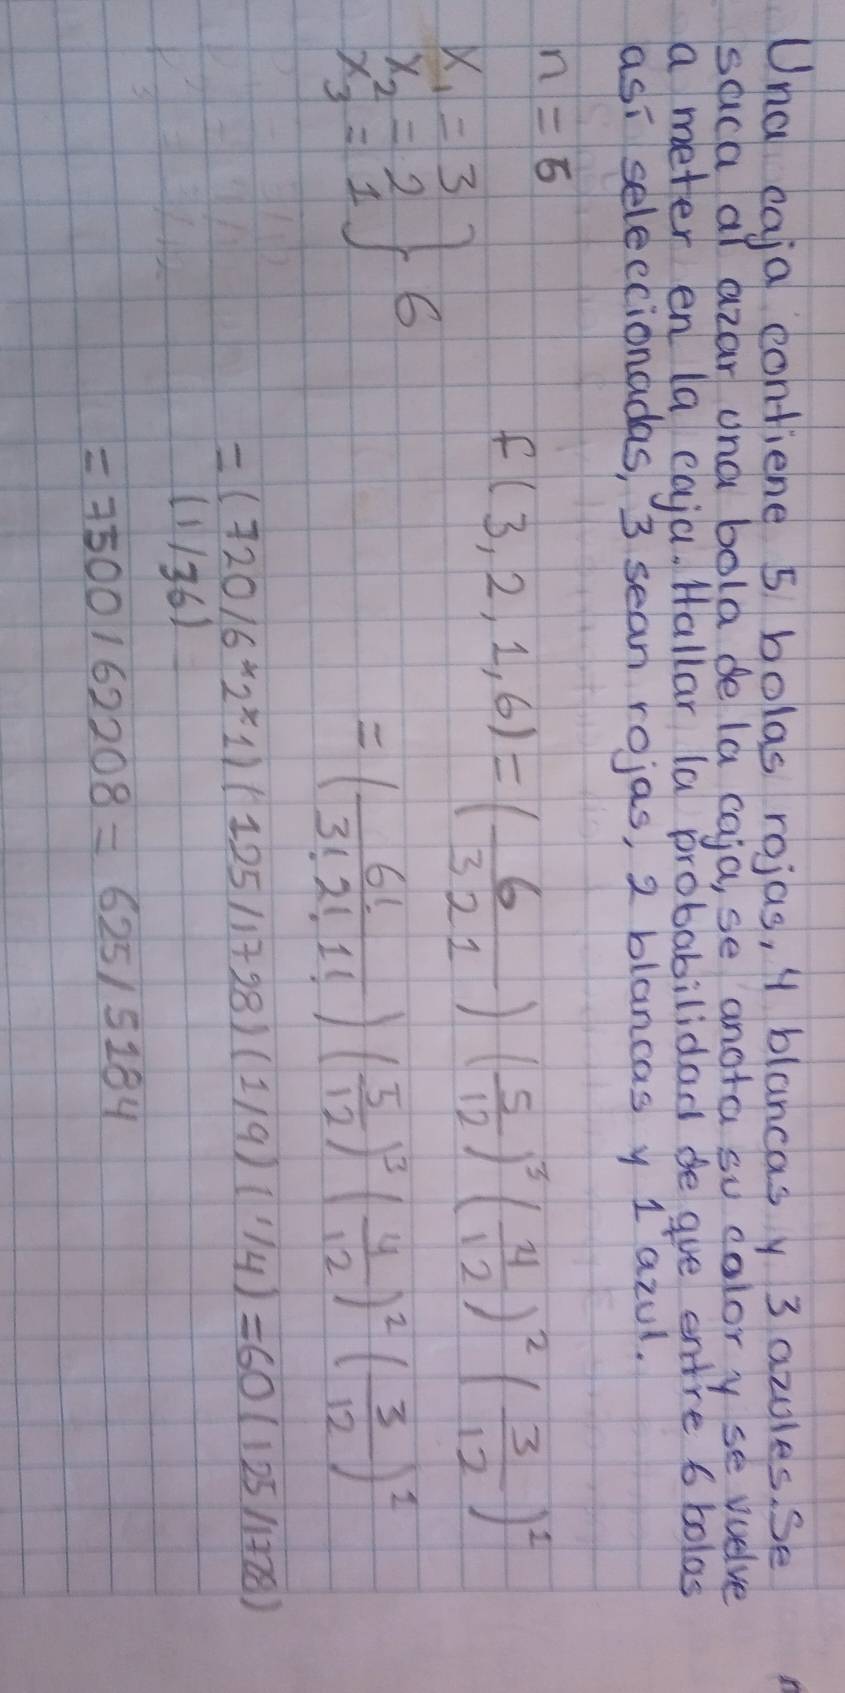 Una caja contiene 5 bolas rojas, 4 blancas y 3 azules. Se
saca al azar una bola de la caja, se anota su color y se vuelve
a meter en la caja. Hallar la probabilidad de que entre 6 bolas
así seleccionadas, 3 sean rojas, 2 blancas y 1 azul.
n = 6
x1 = 3
x2 = 2
x3 = 1
} 6
f(3,2,1,6) = (6 / 3 2 1) (5/12)³ (4/12)² (3/12)¹
= (6! / 3! 2! 1!) (5/12)³ (4/12)² (3/12)¹
= (720/6*2*1) (125/1728) (1/9) (1/4) = 60 (125/1728)
(1/36)
= 7500/62208 = 625/5184